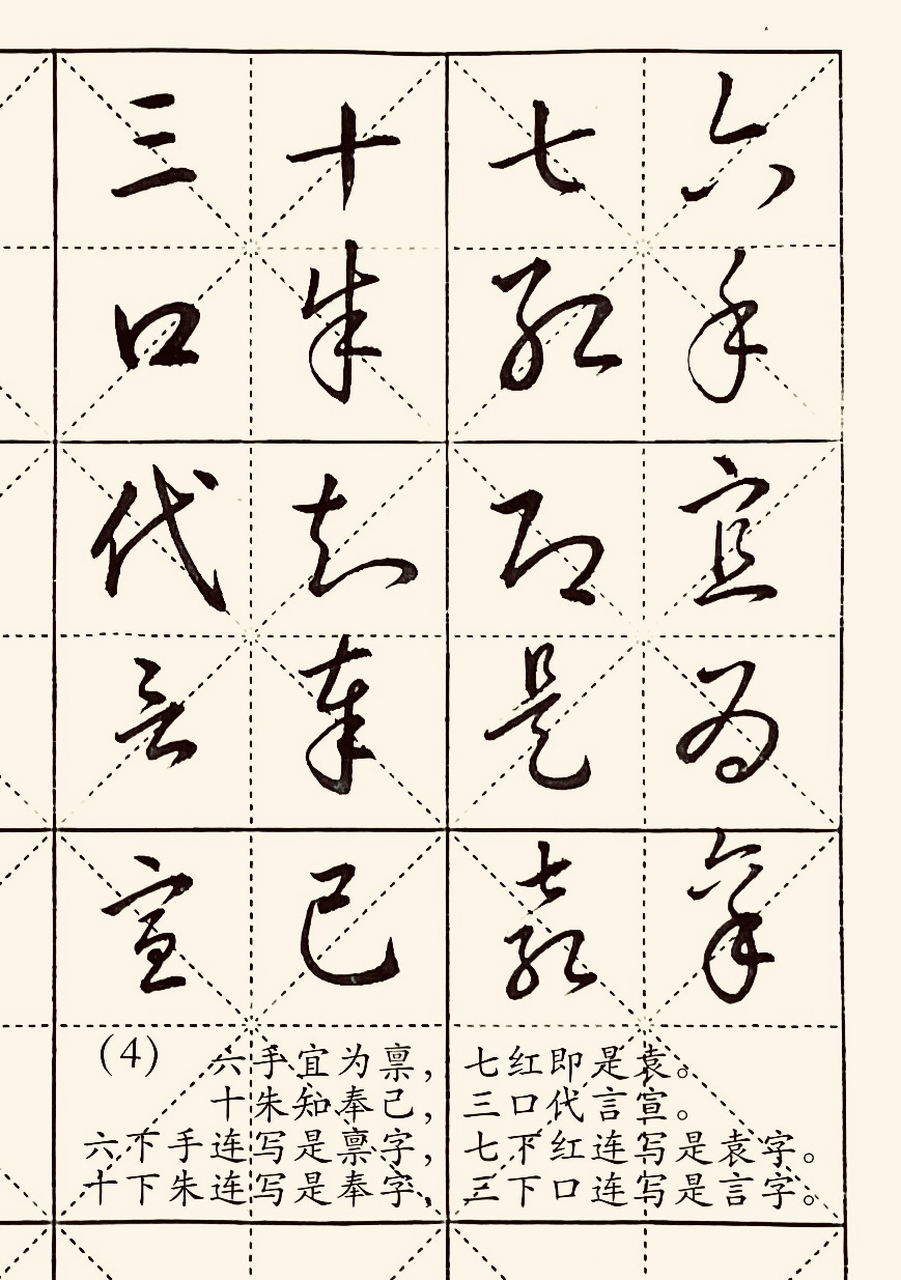 六手宜为禀
七红即是袁
十朱知奉己
三口代言宣
(4) 六手宜为禀，七红即是袁。
十朱知奉己，三口代言宣。
六下手连写是禀字，七下红连写是袁字。
十下朱连写是奉字，三下口连写是言字。